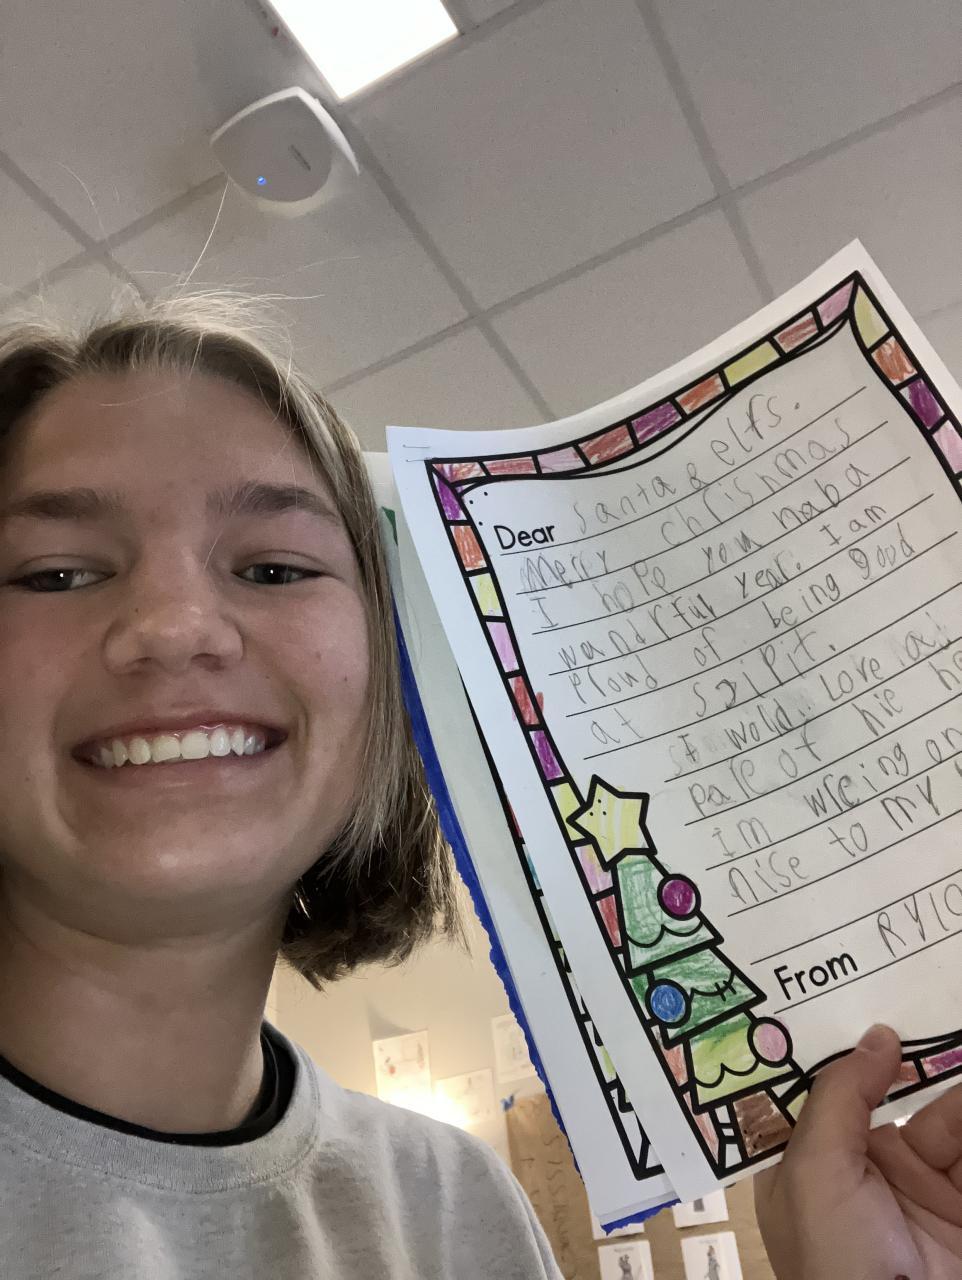 Dear Santa & elfs.
Merry chrishmas
I hope you haba
wandrful year. I am
Ploud of being good
at
I wold Love
pare of hie
Im wreing on
nise to my
From RYlo